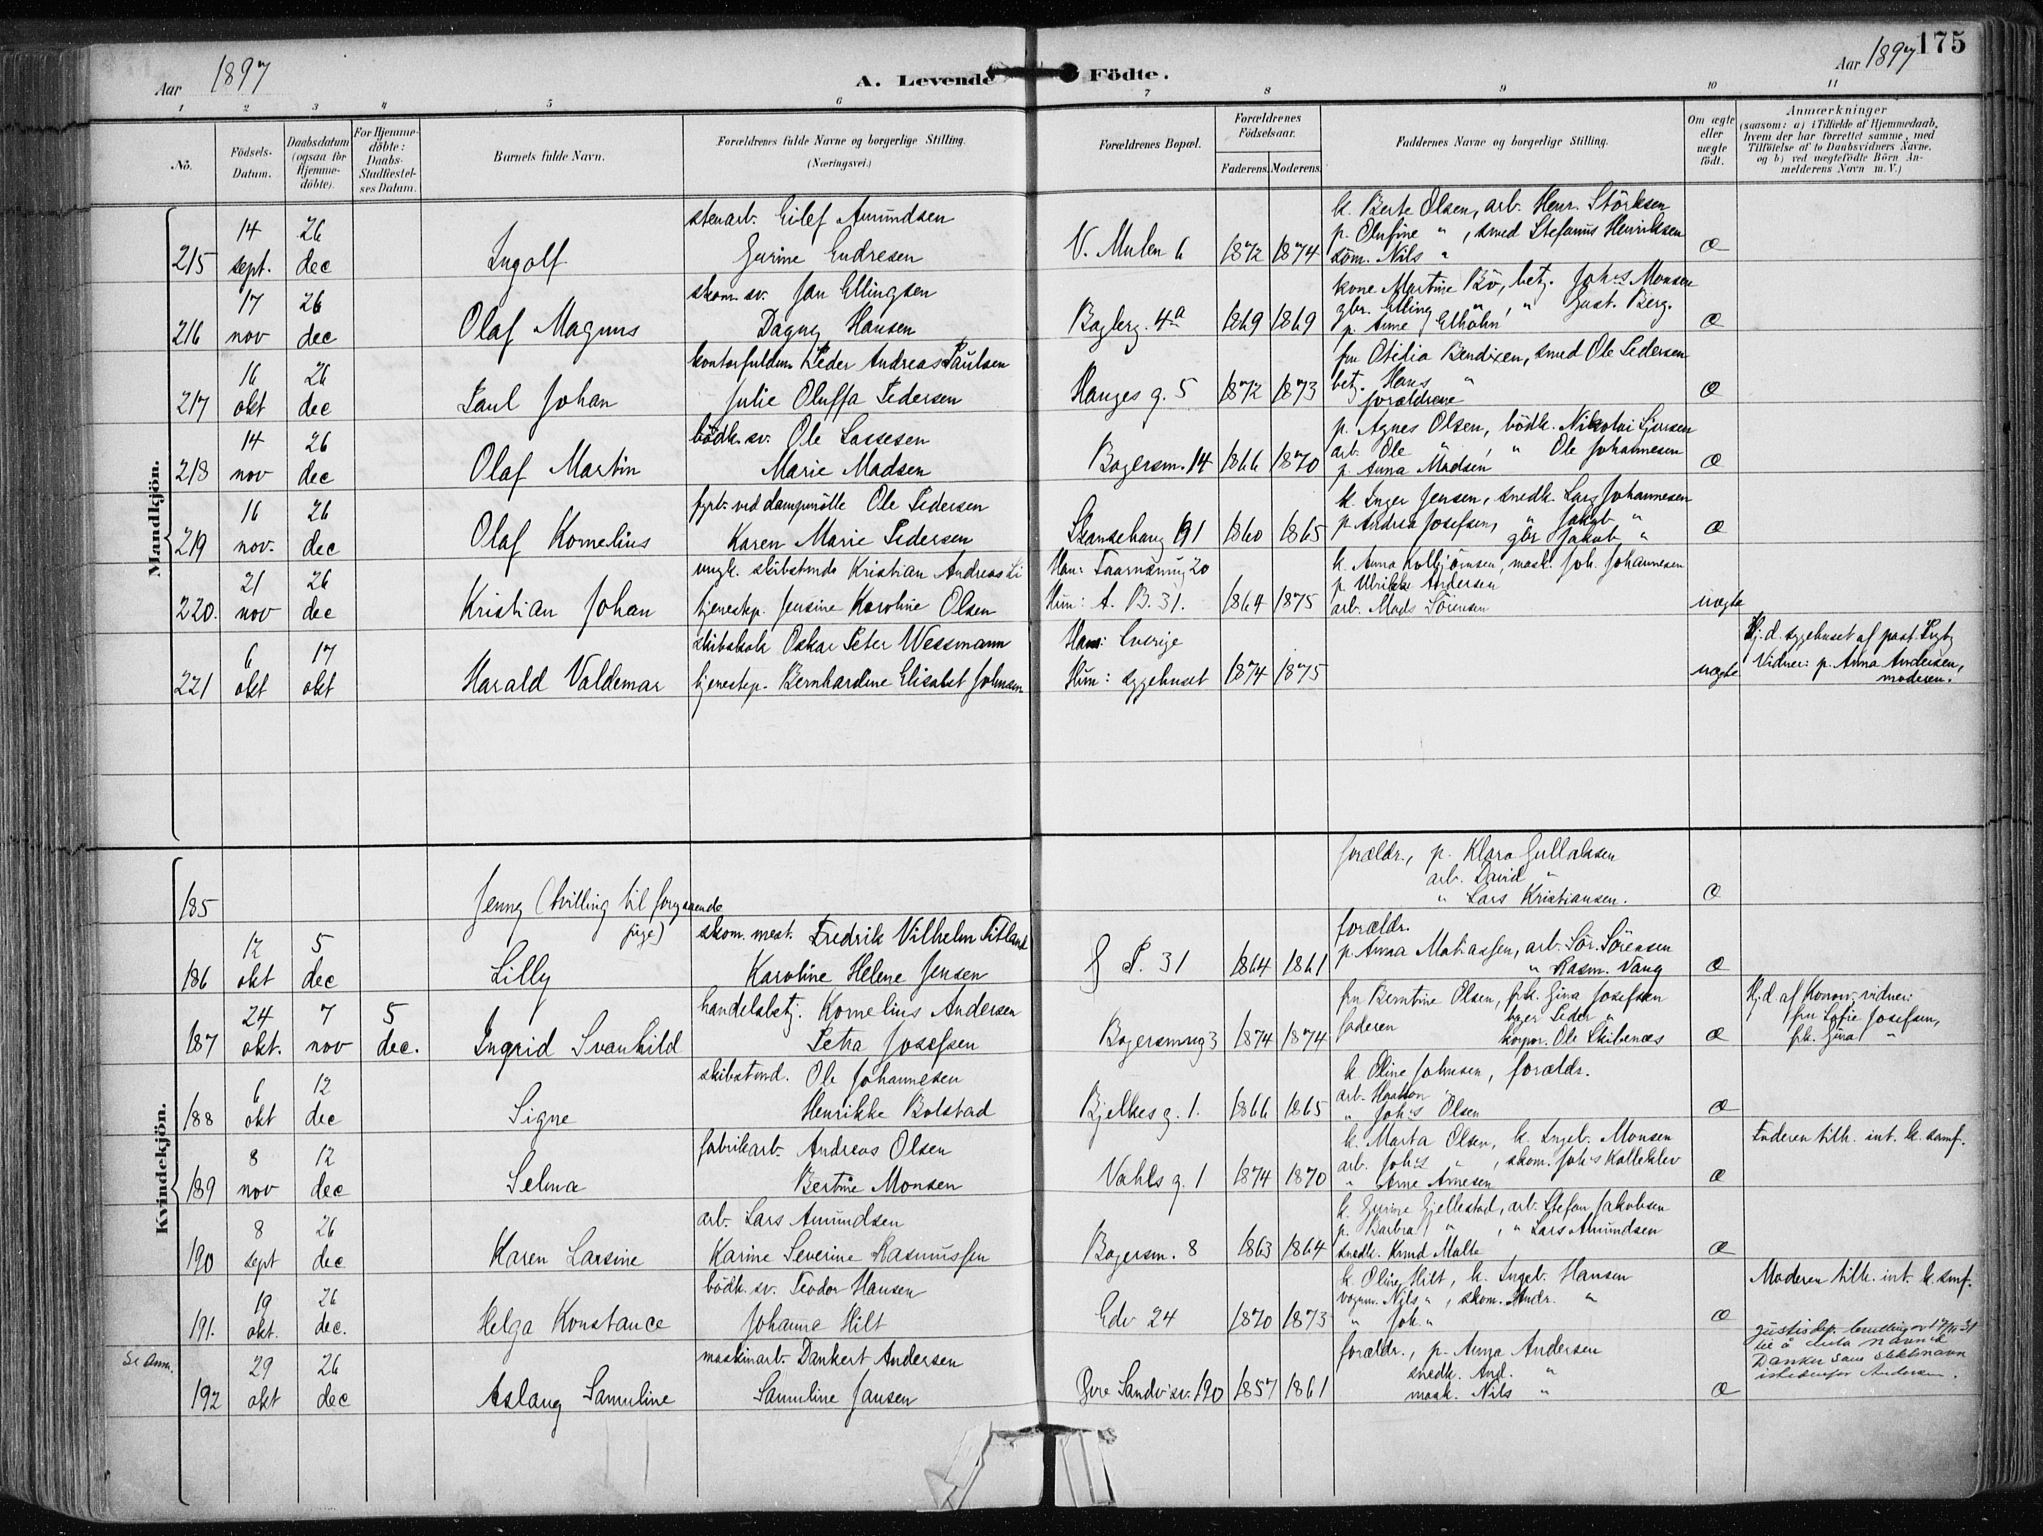 175
Aar 1897
A. Levende Födte.
Aar 1897
1 2 3 4 5 6 7 8 9 10 11
Nö.
Födsels-Datum.
Daabsdatum (ogsaa for Hjemme-döbte).
For Hjemme-döbte: Daabs-Stadfæstel-ses Datum.
Barnets fulde Navn.
Forældrenes fulde Navne og borgerlige Stilling. (Næringsvei.)
Forældrenes Bopæl.
Forældrenes Födselsaar.
Faderens. Moderens.
Faddernes Navne og borgerlige Stilling.
Om ægte eller uægte födt.
Anmærkninger (saasom: a) i Tilfælde af Hjemmedaab, hvem der har forrettet samme, med Tilföielse af to Daabsvidners Navne, og b) ved uægtefödte Börn An-melderens Navn m. V.)
Mandkjön.
215 14 sept. 26 dec Ingolf
stenarb. Eilef Amundsen
Gurine Endresen
V. Mulen 6 1872 1874
k. Berte Olsen, arb. Henr. Störksen
p. Olufine " , smed Stefanus Henriksen
söm. Nils "
æ
216 17 nov 26 dec Olaf Magnus
skom. sv. Jan Ellingsen
Dagny Hansen
Bagerg. 4a 1869 1869
kone Martine Bö, betj. Joh's Monsen
gbr. Elling " , " Gust. Berg.
p. Anne Elholm
æ
217 16 okt 26 dec Paul Johan
kontorfuldm. Peder Andreas Paulsen
Julie Oluffa Pedersen
Hauges g. 5 1872 1873
fru Otilia Bendixen, smed Ole Pedersen
betj. Hans "
forældrene
æ
218 14 nov 26 dec Olaf Martin
bödk. sv. Ole Lassesen
Marie Madsen
Bagersm. 14 1866 1870
p. Agnes Olsen, bödk. Nikolai Sjursen
arb. Ole " , " Ole Johannesen
p. Anna Madsen
æ
219 16 nov. 26 dec Olaf Kornelius
fyrb. ved dampmölle Ole Pedersen
Karen Marie Pedersen
Skansehaug 91 1860 1865
k. Inger Jensen, snedk. Lars Johannesen
p. Andrea Josefsen, " Jakob "
gbr Jakob "
æ
220. 21 nov 26 dec Kristian Johan
ungk. skibstmd. Kristian Andreas Li
tjenestep. Jensine Karoline Olsen
Han: Taarnsmug 20
Hun: A. B. 31. 1864 1875
k. Anna Kolbjörnsen, mask. Joh. Johannesen
p. Ulrikke Andersen
arb. Mads Sörensen
uægte
221 6 okt 17 okt Harald Valdemar
skibskok Oskar Peter Wessmann
tjenestep. Bernhardine Elisabet Johnsen
Han: Sverige
Hun: sygehuset 1874 1875
uægte
Hj. d. sygehuset af past.
Vidner: p. Anna Andersen,
moderen.
Kvindekjön.
185 Jenny (tvilling til foregaaende
pige)
forældr., p. Klara Gullaksen
arb. David "
" Lars Kristiansen.
æ
186 12 okt 5 dec Lilly
skom. mest. Fredrik Vilhelm Titland
Karoline Helene Jensen
P. 31 1864 1861
forældr.
p. Anna Matiassen, arb. Sör. Sörensen
" Rasm. Vaag
æ
187 24 okt. 7 nov 5 dec. Ingrid Svanhild
handelsbetj. Kornelius Andersen
Petra Josefsen
Bagersmug 3 1874 1874
fru Berntine Olsen, frk. Gina Josefsen
faderen bager Peder "
korpor. Ole Skibenæs
æ
Hj. d. af Konow, vidner:
fru Sofie Josefsen,
frk. Gina "
188 6 okt 12 dec Signe
skibstmd. Ole Johannesen
Henrikke Bolstad
Bjelkes g. 1. 1866 1865
k. Oline Johnsen, forældr.
arb. Haakon "
" Joh's Olsen
æ
189 8 nov 12 dec Selma
fabrikarb. Andreas Olsen
Bertine Monsen
Vahls g. 1 1874 1870
k. Marta Olsen, k. Ingeb. Monsen
arb. Joh's " , skom. Joh's Kalleklev
" Arne Arnesen
æ
Faderen tilh. int. k. samf.
190 8 sept 26 dec Karen Larsine
arb. Lars Amundsen
Karine Severine Rasmussen
Bagersm. 8 1863 1864
k. Gurine Gjellestad, arb. Stefan Jakobsen
p. Barbra " , " Lars Amundsen
snedk. Knud Malte
æ
191. 19 okt. 26 dec. Helga Konstance
bödk. sv. Teodor Hansen
Johanna Hilt
Edv 24 1870 1873
k. Oline Hilt, k. Ingeb. Hansen
vognm. Nils " , skom. Andr. "
" Joh. "
æ
Moderen tilh. int. k. smf.
Se Anm.
192 29 okt 26 dec Aslaug Samuline
maskinarb. Dankert Andersen
Samuline Jansen
Övre Sandv'sv. 190 1857 1861
forældr., p. Anna Andersen
snedk. And. "
mask. Nils "
æ
Justisdep. bevilling av
til å ta navnet
Danker som slektsnavn
istedenfor Andersen.